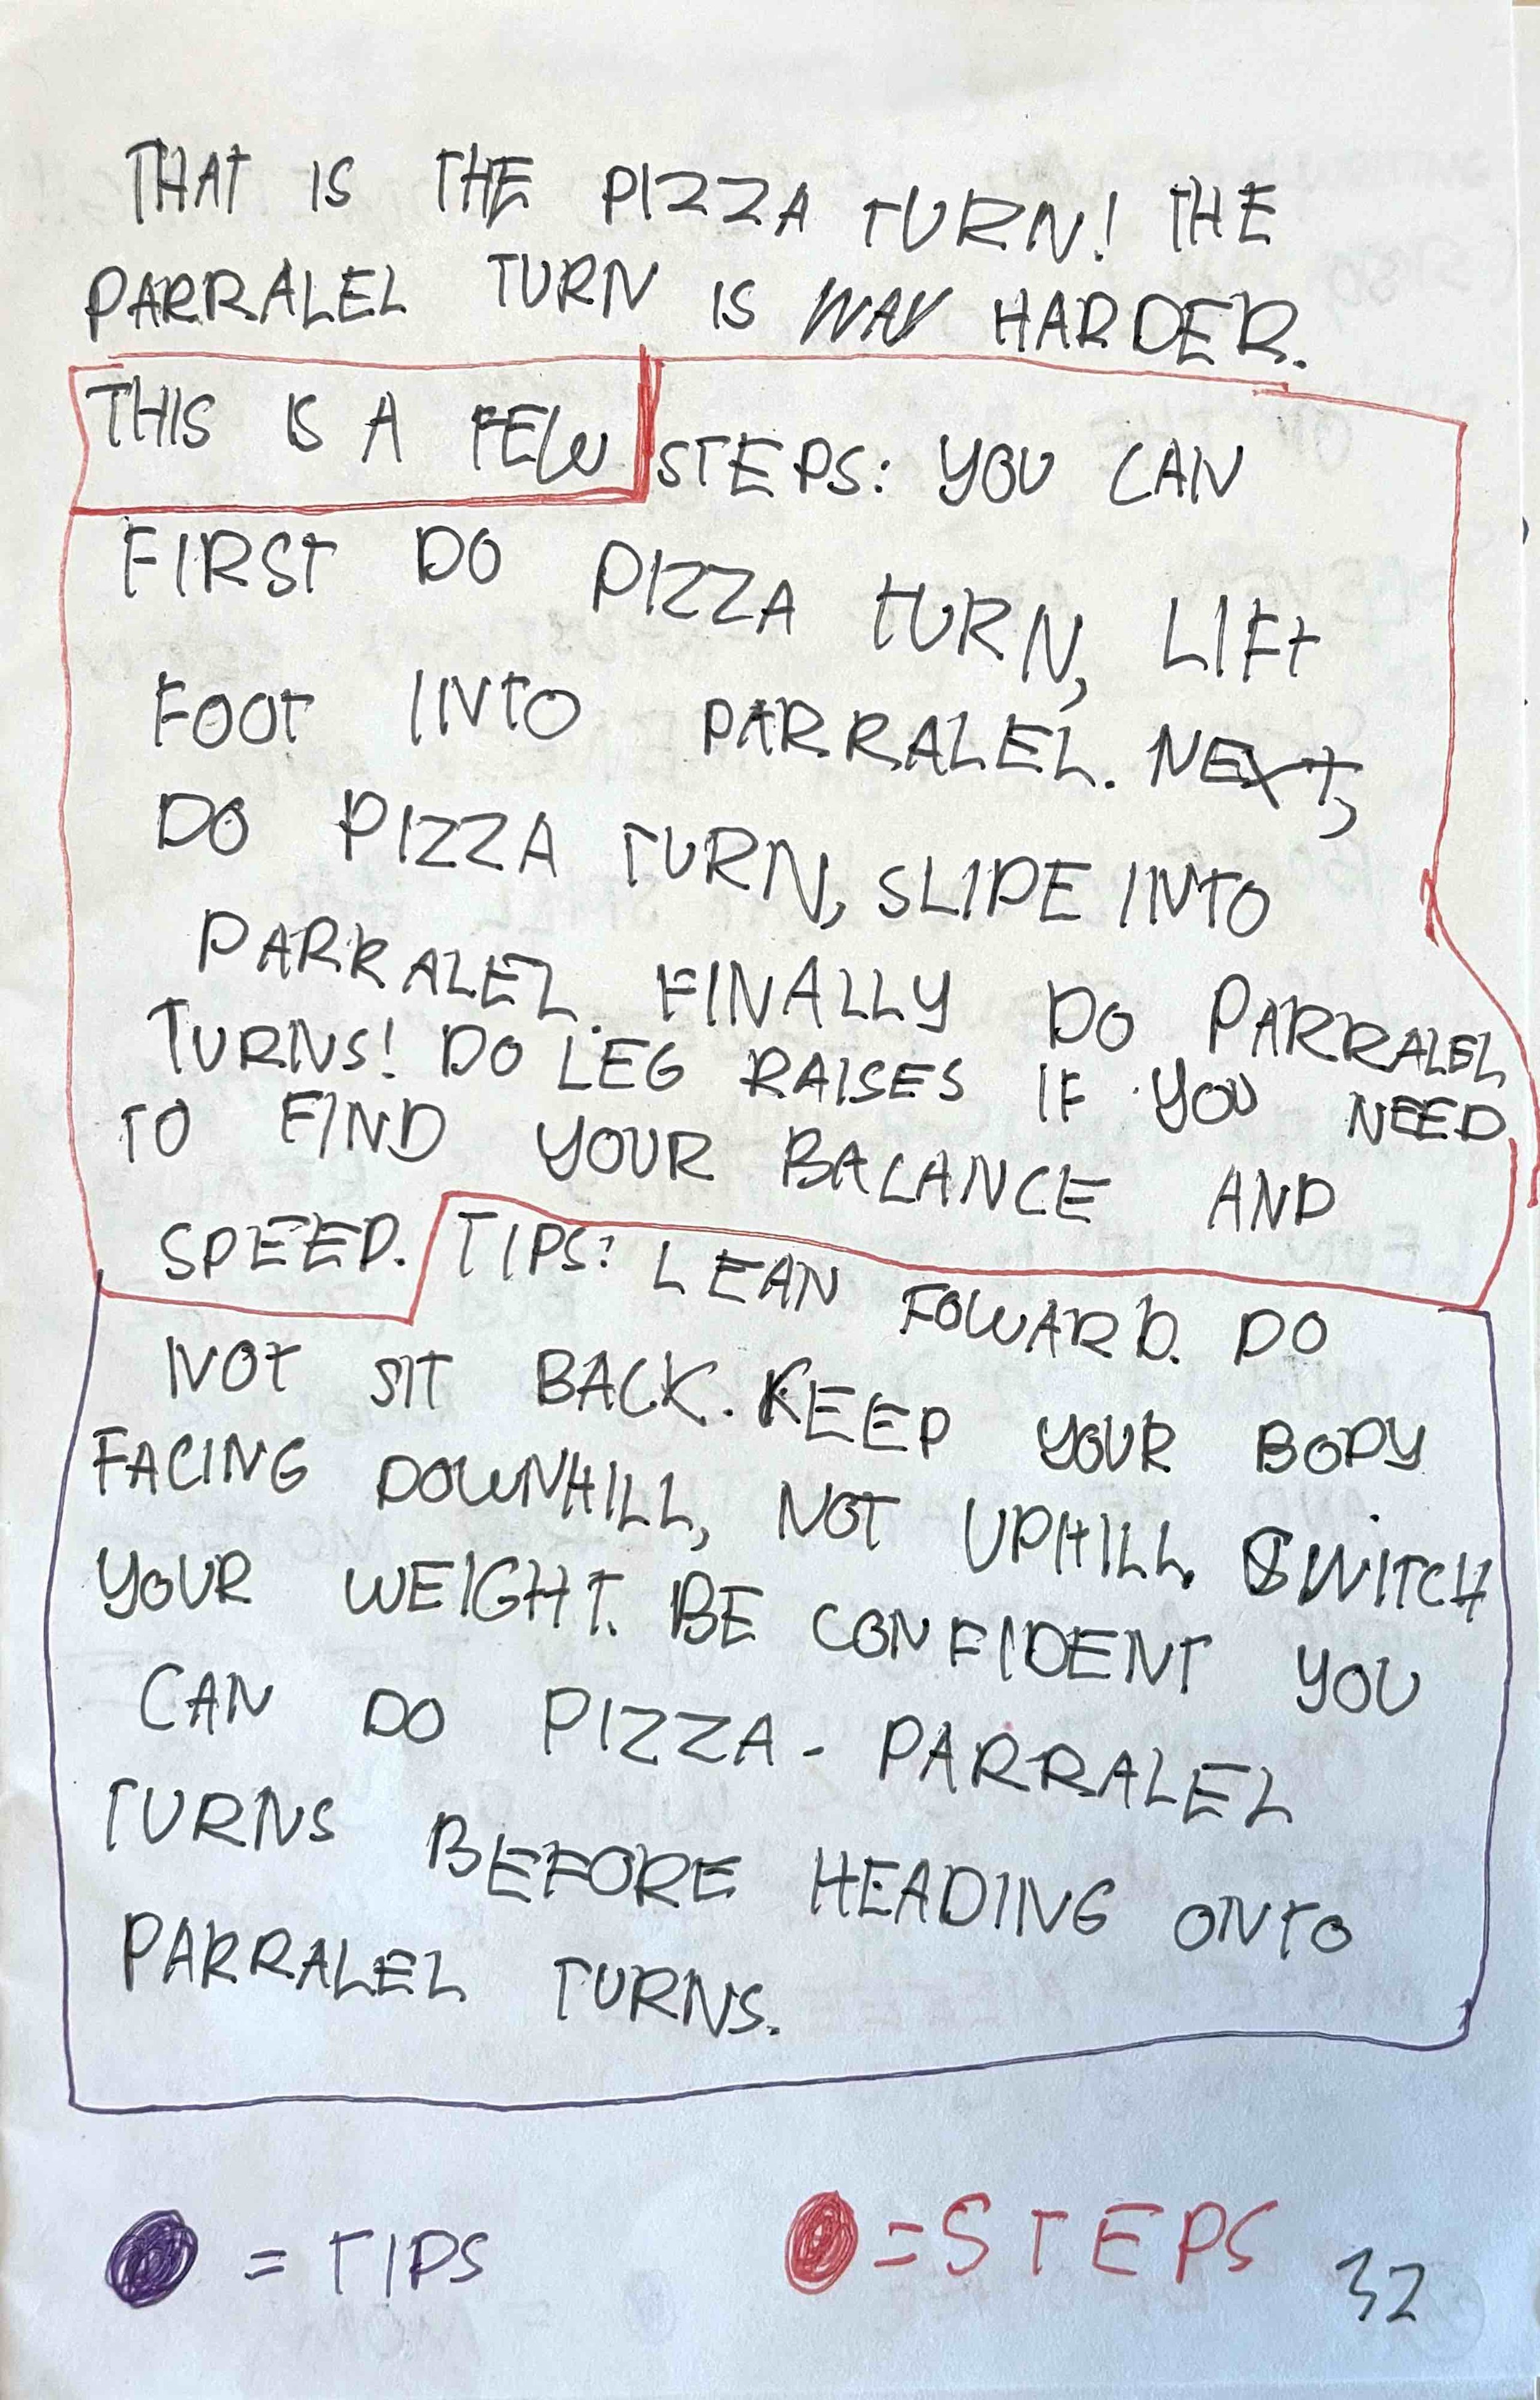 THAT IS THE PIZZA TURN! THE
PARRALEL TURN IS WAY HARDER.
THIS IS A FEW STEPS: YOU CAN
FIRST DO PIZZA TURN, LIFT
FOOT INTO PARRALEL. NEXT,
DO PIZZA TURN, SLIDE INTO
PARRALEL. FINALLY DO PARRALEL
TURNS! DO LEG RAISES IF YOU NEED
TO FIND YOUR BALANCE AND
SPEED. TIPS: LEAN FOWARD. DO
NOT SIT BACK. KEEP YOUR BODY
FACING DOWNHILL, NOT UPHILL. SWITCH
YOUR WEIGHT. BE CONFIDENT YOU
CAN DO PIZZA - PARRALEL
TURNS BEFORE HEADING ONTO
PARRALEL TURNS.
= TIPS
= STEPS
32